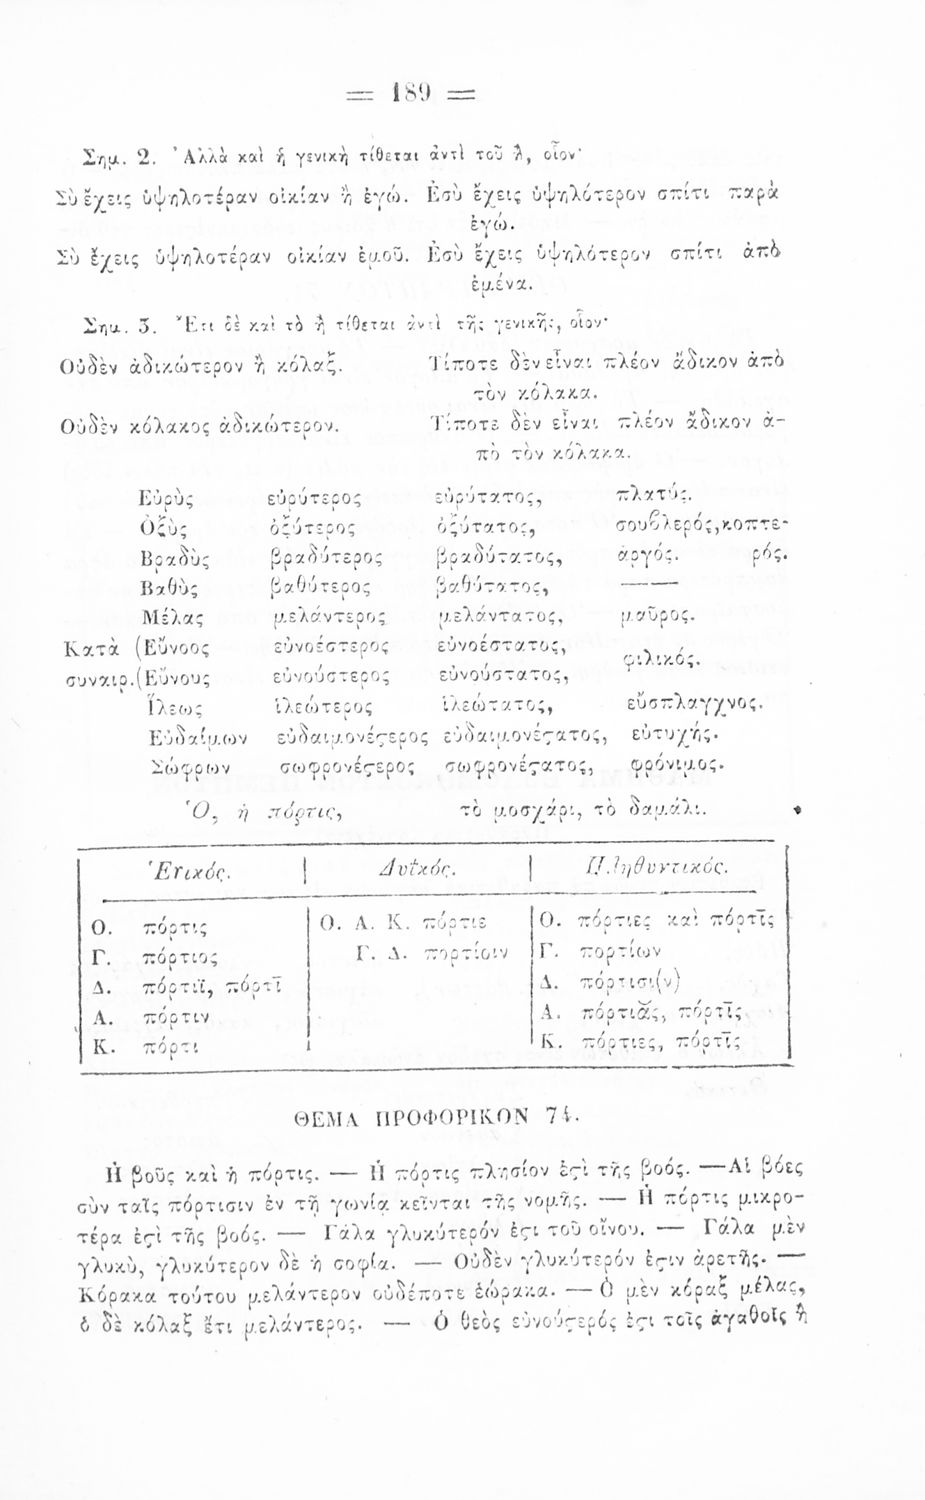 = 189 =
Σημ. 2. Ἀλλὰ καὶ ἡ γενικὴ τίθεται ἀντὶ τοῦ ἢ, οἷον·
Σὺ ἔχεις ὑψηλοτέραν οἰκίαν ἢ ἐγώ. Ἐσὺ ἔχεις ὑψηλότερον σπίτι παρὰ
ἐγώ.
Σὺ ἔχεις ὑψηλοτέραν οἰκίαν ἐμοῦ. Ἐσὺ ἔχεις ὑψηλότερον σπίτι ἀπὸ
ἐμένα.
Σημ. 3. Ἔτι δὲ καὶ τὸ ἢ τίθεται ἀντὶ τῆς γενικῆς, οἷον·
Οὐδὲν ἀδικώτερον ἢ κόλαξ. Τίποτε δὲν εἶναι πλέον ἄδικον ἀπὸ
τὸν κόλακα.
Οὐδὲν κόλακος ἀδικώτερον. Τίποτε δὲν εἶναι πλέον ἄδικον ἀ-
πὸ τὸν κόλακα.
Εὐρὺς εὐρύτερος εὐρύτατος, πλατύς.
Ὀξὺς ὀξύτερος ὀξύτατος, σουβλερός, κοπτε-
Βραδὺς βραδύτερος βραδύτατος, ἀργός. ρός.
Βαθὺς βαθύτερος βαθύτατος, ——
Μέλας μελάντερος μελάντατος, μαῦρος.
Κατὰ (Εὔνοος εὐνοέστερος εὐνοέστατος,
φιλικός.
συναιρ.(Εὔνους εὐνούστερος εὐνούστατος,
Ἵλεως ἱλεώτερος ἱλεώτατος, εὔσπλαγχνος.
Εὐδαίμων εὐδαιμονέϛερος εὐδαιμονέϛατος, εὐτυχής.
Σώφρων σωφρονέϛερος σωφρονέϛατος, φρόνιμος.
Ὁ, ἡ πόρτις, τὸ μοσχάρι, τὸ δαμάλι.
Ἑνικός. | Δυϊκός. | Πληθυντικός.
Ο. πόρτις Ο. Α. Κ. πόρτιε Ο. πόρτιες καὶ πόρτῑς
Γ. πόρτιος Γ. Δ. πορτίοιν Γ. πορτίων
Δ. πόρτιϊ, πόρτῑ Δ. πόρτισι(ν)
Α. πόρτιν Α. πόρτιᾶς, πόρτῑς
Κ. πόρτι Κ. πόρτιες, πόρτῑς
ΘΕΜΑ ΠΡΟΦΟΡΙΚΟΝ 74.
Ἡ βοῦς καὶ ἡ πόρτις. — Ἡ πόρτις πλησίον ἐϛὶ τῆς βοός. — Αἱ βόες
σὺν ταῖς πόρτισιν ἐν τῇ γωνίᾳ κεῖνται τῆς νομῆς. — Ἡ πόρτις μικρο-
τέρα ἐϛὶ τῆς βοός. — Γάλα γλυκύτερόν ἐϛι τοῦ οἴνου. — Γάλα μὲν
γλυκὺ, γλυκύτερον δὲ ἡ σοφία. — Οὐδὲν γλυκύτερόν ἐϛιν ἀρετῆς. —
Κόρακα τούτου μελάντερον οὐδέποτε ἑώρακα. — Ὁ μὲν κόραξ μέλας,
ὁ δὲ κόλαξ ἔτι μελάντερος. — Ὁ θεὸς εὐνούϛερός ἐϛι τοῖς ἀγαθοῖς ἢ